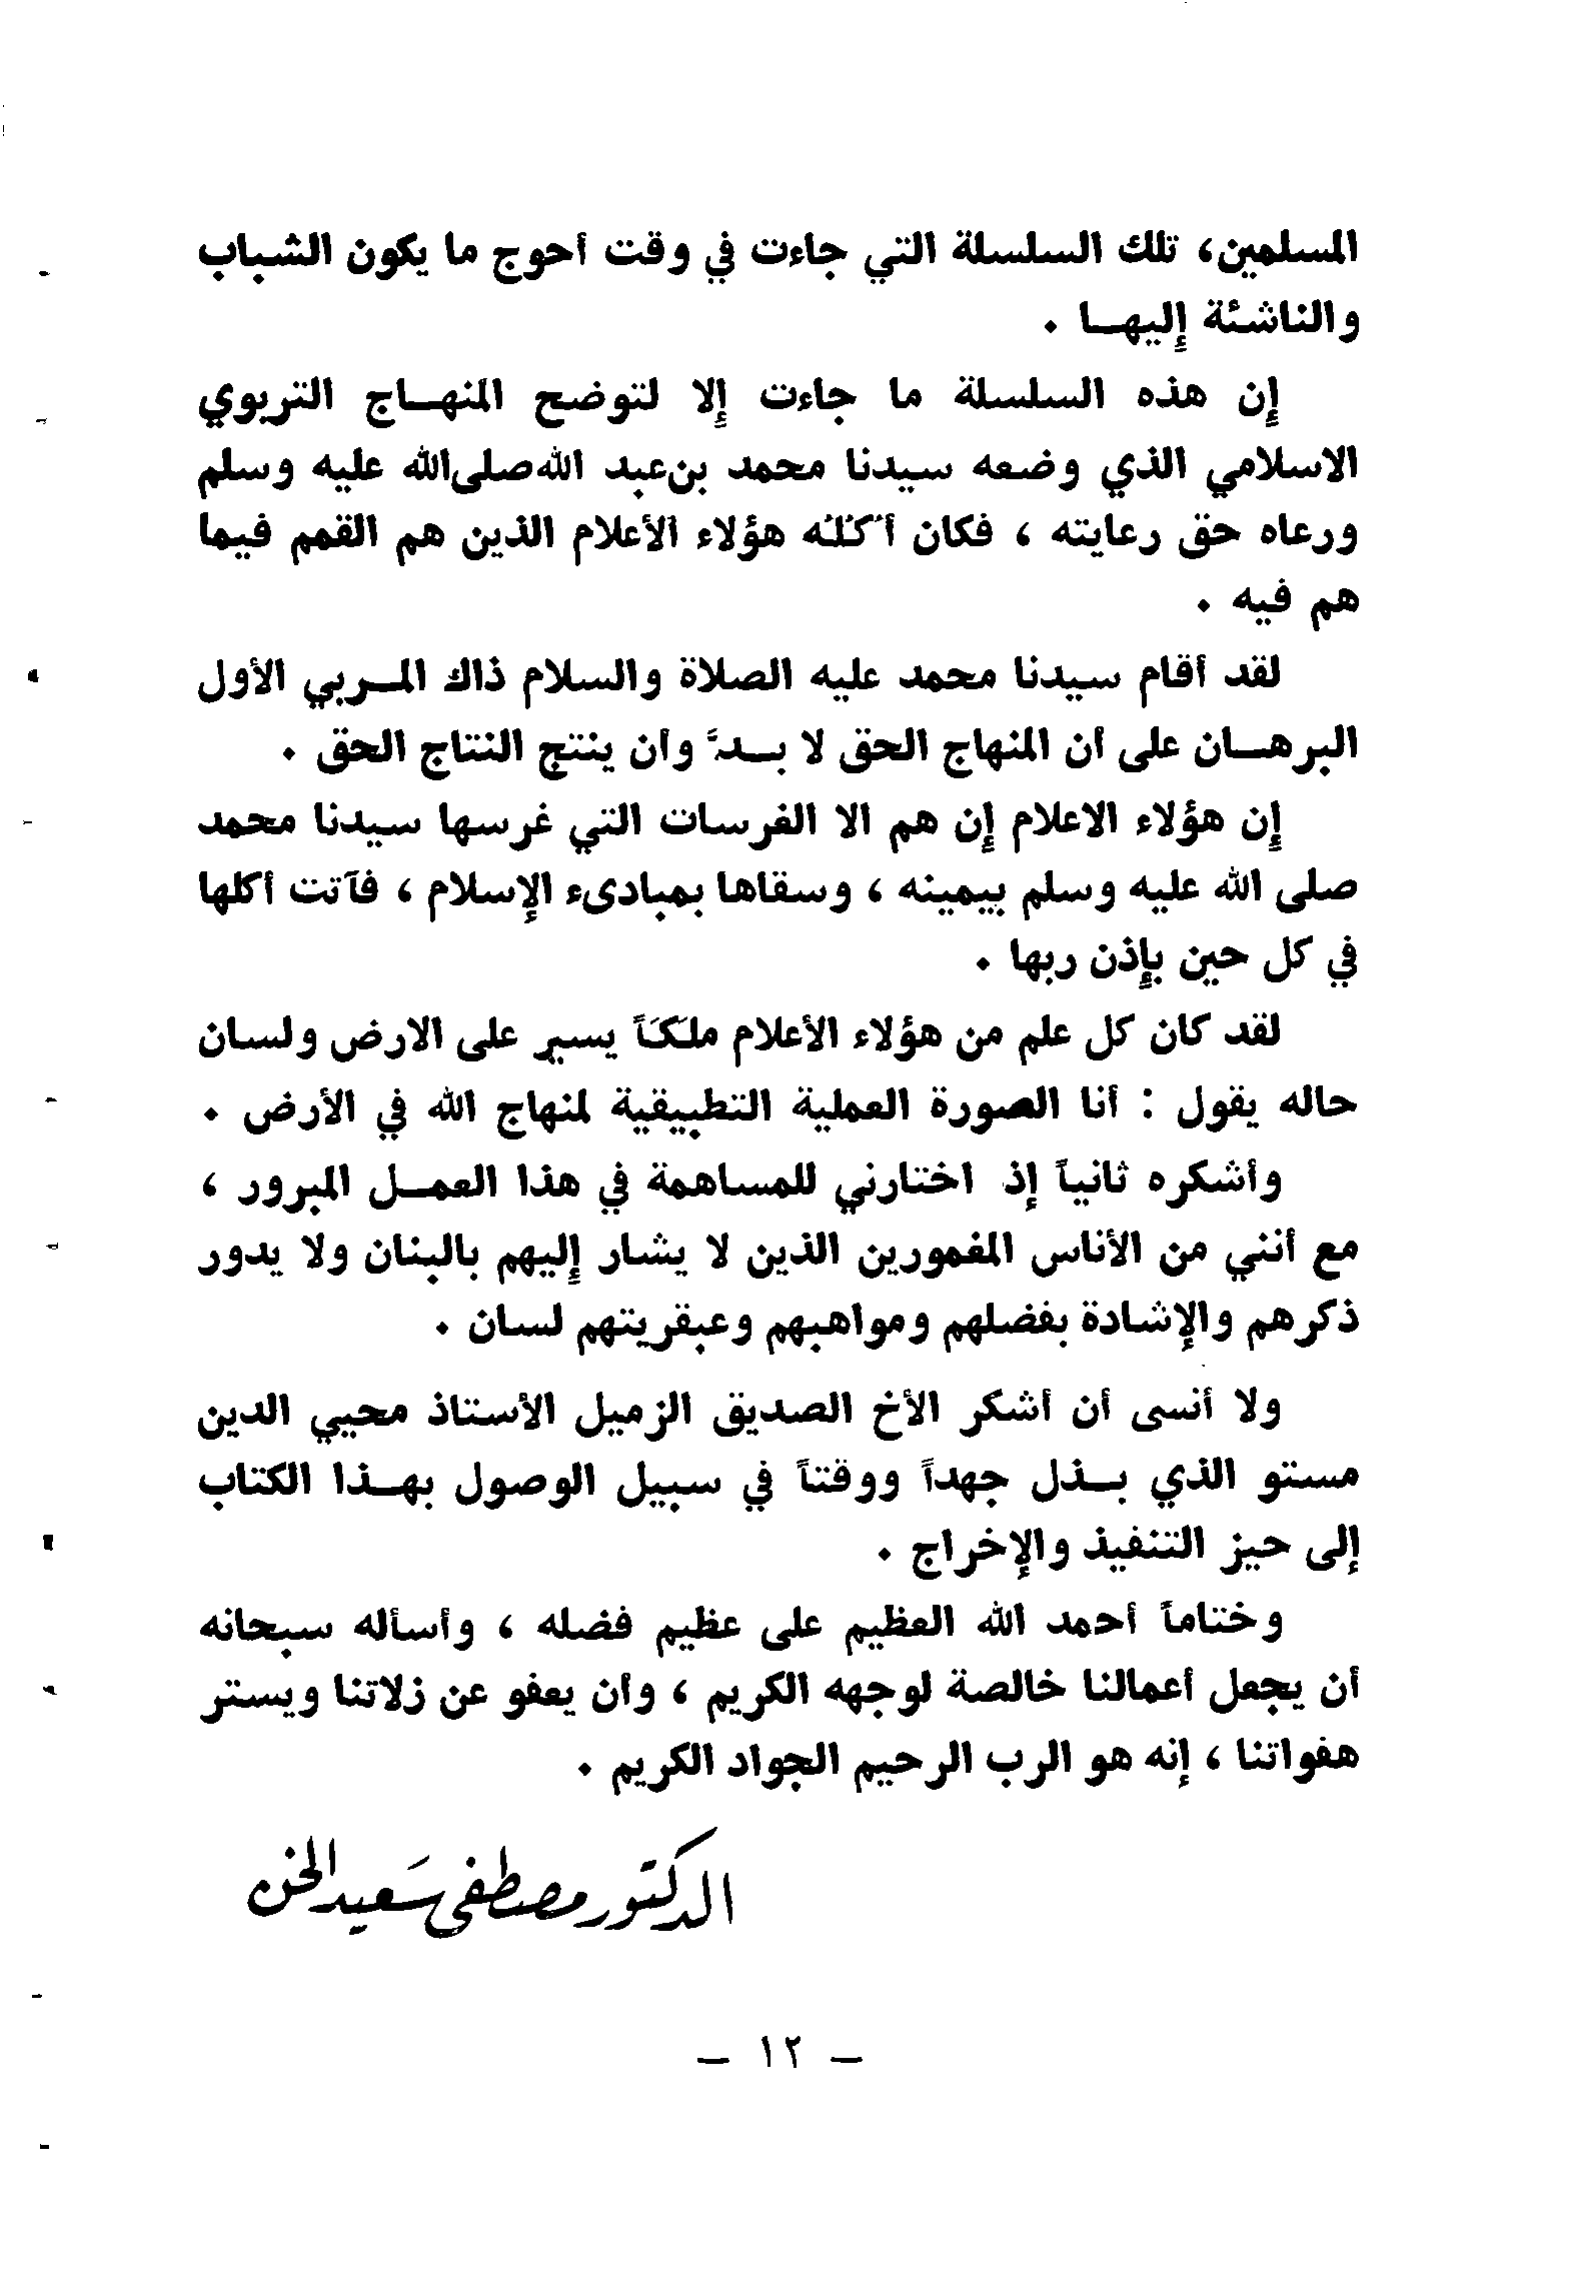 المسلمين، تلك السلسلة التي جاءت في وقت أحوج ما يكون الشباب
والناشئة إليهـا .
إن هذه السلسلة ما جاءت إلا لتوضح المنهـاج التربوي
الاسلامي الذي وضعه سيدنا محمد بن عبد الله صلى الله عليه وسلم
ورعاه حق رعايته ، فكان أُكُلُه هؤلاء الأعلام الذين هم القمم فيما
هم فيه .
لقد أقام سيدنا محمد عليه الصلاة والسلام ذاك المـربي الأول
البرهـان على أن المنهاج الحق لا بـدَّ وأن ينتج النتاج الحق .
إن هؤلاء الاعلام إن هم الا الغرسات التي غرسها سيدنا محمد
صلى الله عليه وسلم بيمينه ، وسقاها بمبادىء الإسلام ، فآتت أكلها
في كل حين بإذن ربها .
لقد كان كل علم من هؤلاء الأعلام ملَكَاً يسير على الارض ولسان
حاله يقول : أنا الصورة العملية التطبيقية لمنهاج الله في الأرض .
وأشكره ثانياً إذ اختارني للمساهمة في هذا العمـل المبرور ،
مع أنني من الأناس المغمورين الذين لا يشار إليهم بالبنان ولا يدور
ذكرهم والإشادة بفضلهم ومواهبهم وعبقريتهم لسان .
ولا أنسى أن أشكر الأخ الصديق الزميل الأستاذ محيي الدين
مستو الذي بـذل جهداً ووقتاً في سبيل الوصول بهـذا الكتاب
إلى حيز التنفيذ والإخراج .
وختاماً أحمد الله العظيم على عظيم فضله ، وأسأله سبحانه
أن يجعل أعمالنا خالصة لوجهه الكريم ، وأن يعفو عن زلاتنا ويستر
هفواتنا ، إنه هو الرب الرحيم الجواد الكريم .
الدكتور مصطفى سَعيد الخن
– ١٢ –